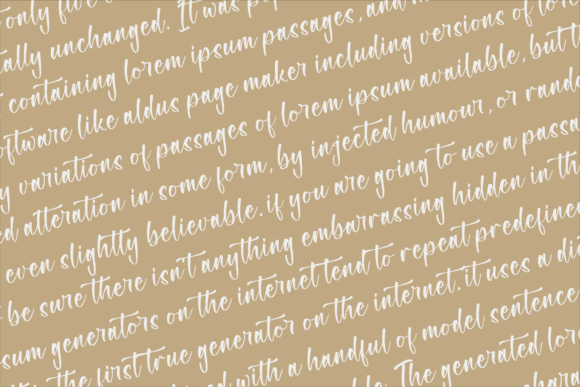 only five
ally unchanged. It was
containing lorem ipsum passages, and
software like aldus page maker including versions of lorem
variations of passages of lorem ipsum available, but
alteration in some form, by injected humour, or rando
even slightly believable. if you are going to use a passa
be sure there isn't anything embarrassing hidden in th
sum generators on the internet tend to repeat predefine
the first true generator on the internet. it uses a di
with a handful of model sentence
The generated lor